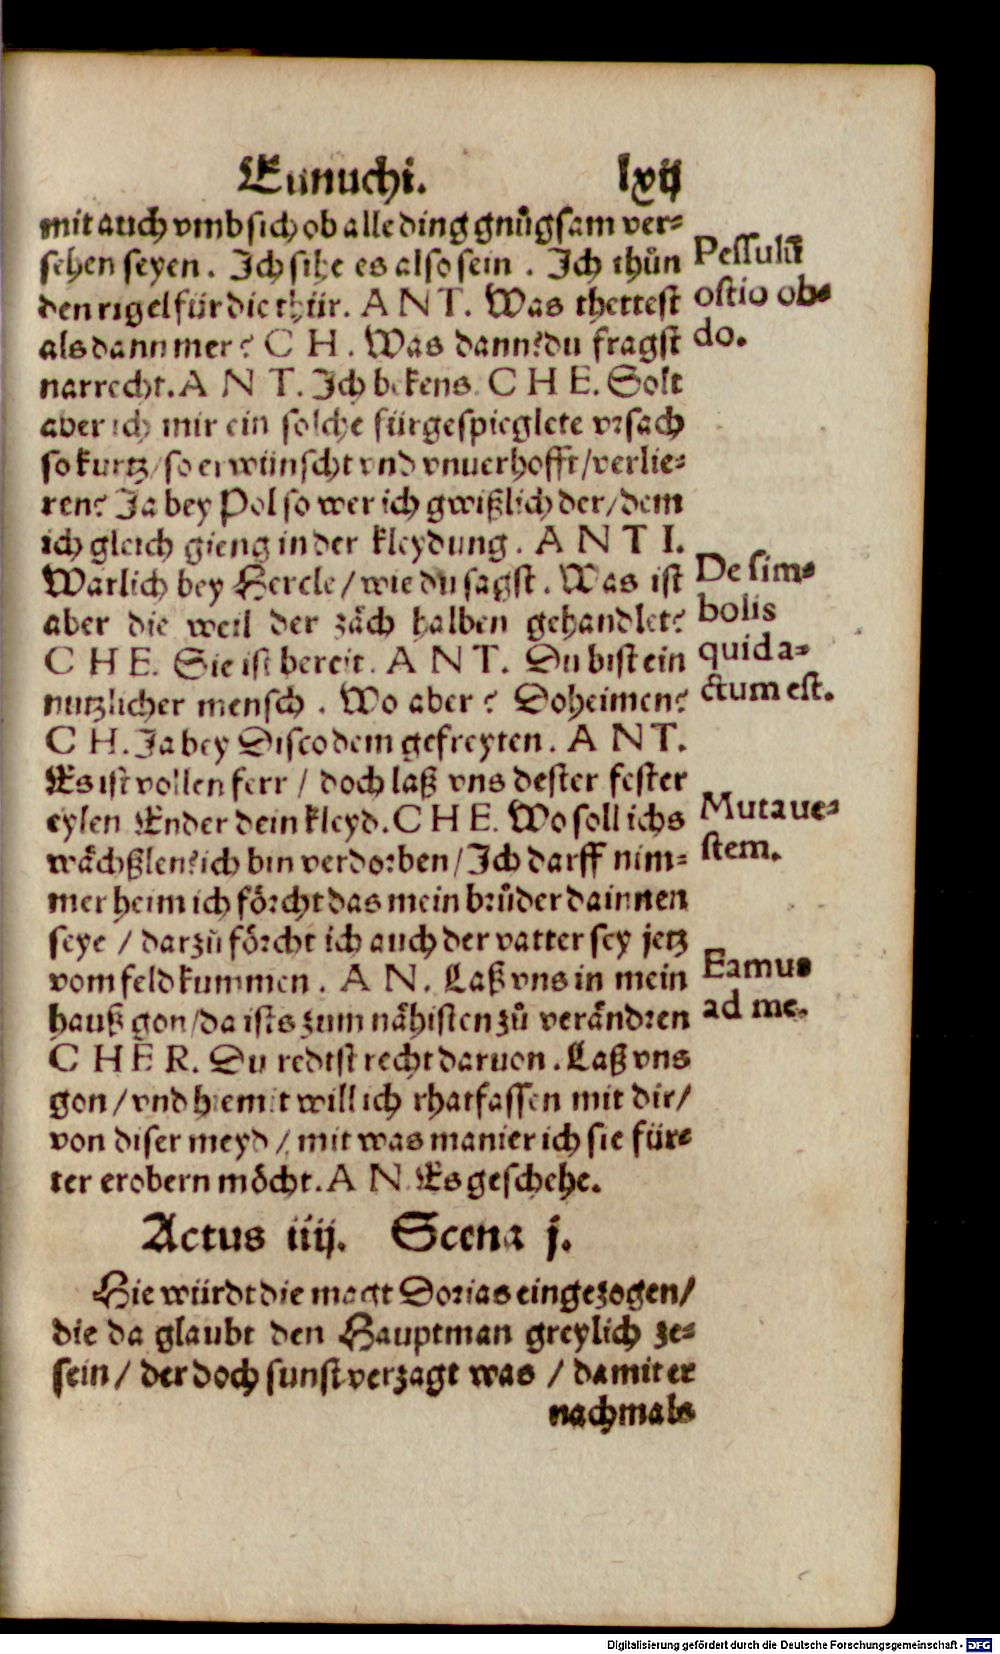 Eunuchi. lxij
mit auch vmb sich ob alle ding gnůgsam ver⸗
sehen seyen. Ich sihe es also sein. Ich thůn
den rigel für die thür. ANT. Was thettest
als dann mer? CH. Was dann? du fragst
narrecht. ANT. Ich bekens. CHE. Solt
aber ich mir ein solche fürgespieglete vrsach
so kurtz/ so erwünscht vnd vnuerhofft/ verlie⸗
ren? Ja bey Pol so wer ich gwißlich der/ dem
ich gleich gieng in der kleydung. ANTI.
Warlich bey Hercle/ wie du sagst. Was ist
aber die weil der zäch halben gehandlet?
CHE. Sie ist bereit. ANT. Du bist ein
nutzlicher mensch. Wo aber? Doheimen?
CH. Ja bey Disco dem gefreyten. ANT.
Es ist vollen ferr/ doch laß vns dester fester
eylen Ender dein kleyd. CHE. Wo soll ichs
wächßlen? ich bin verdorben/ Ich darff nim⸗
mer heim ich förcht das mein brůder dainnen
seye/ darzů förcht ich auch der vatter sey jetz
vom feld kummen. AN. Laß vns in mein
hauß gon/ da ists zum nähisten zů verändren
CHER. Du redtst recht daruon. Laß vns
gon/ vnd hiemit will ich rhatfassen mit dir/
von diser meyd/ mit was manier ich sie für⸗
ter erobern möcht. AN. Es geschehe.
Pessulū
ostio ob⸗
do.
De sim⸗
bolis
quid a⸗
ctum est.
Muta ue⸗
stem.
Eamus
ad me.
Actus iiij. Scena j.
Hie würdt die magt Dorias eingezogen/
die da glaubt den Hauptman greylich ze⸗
sein/ der doch sunst verzagt was/ damit er
nachmals
Digitalisierung gefördert durch die Deutsche Forschungsgemeinschaft - DFG